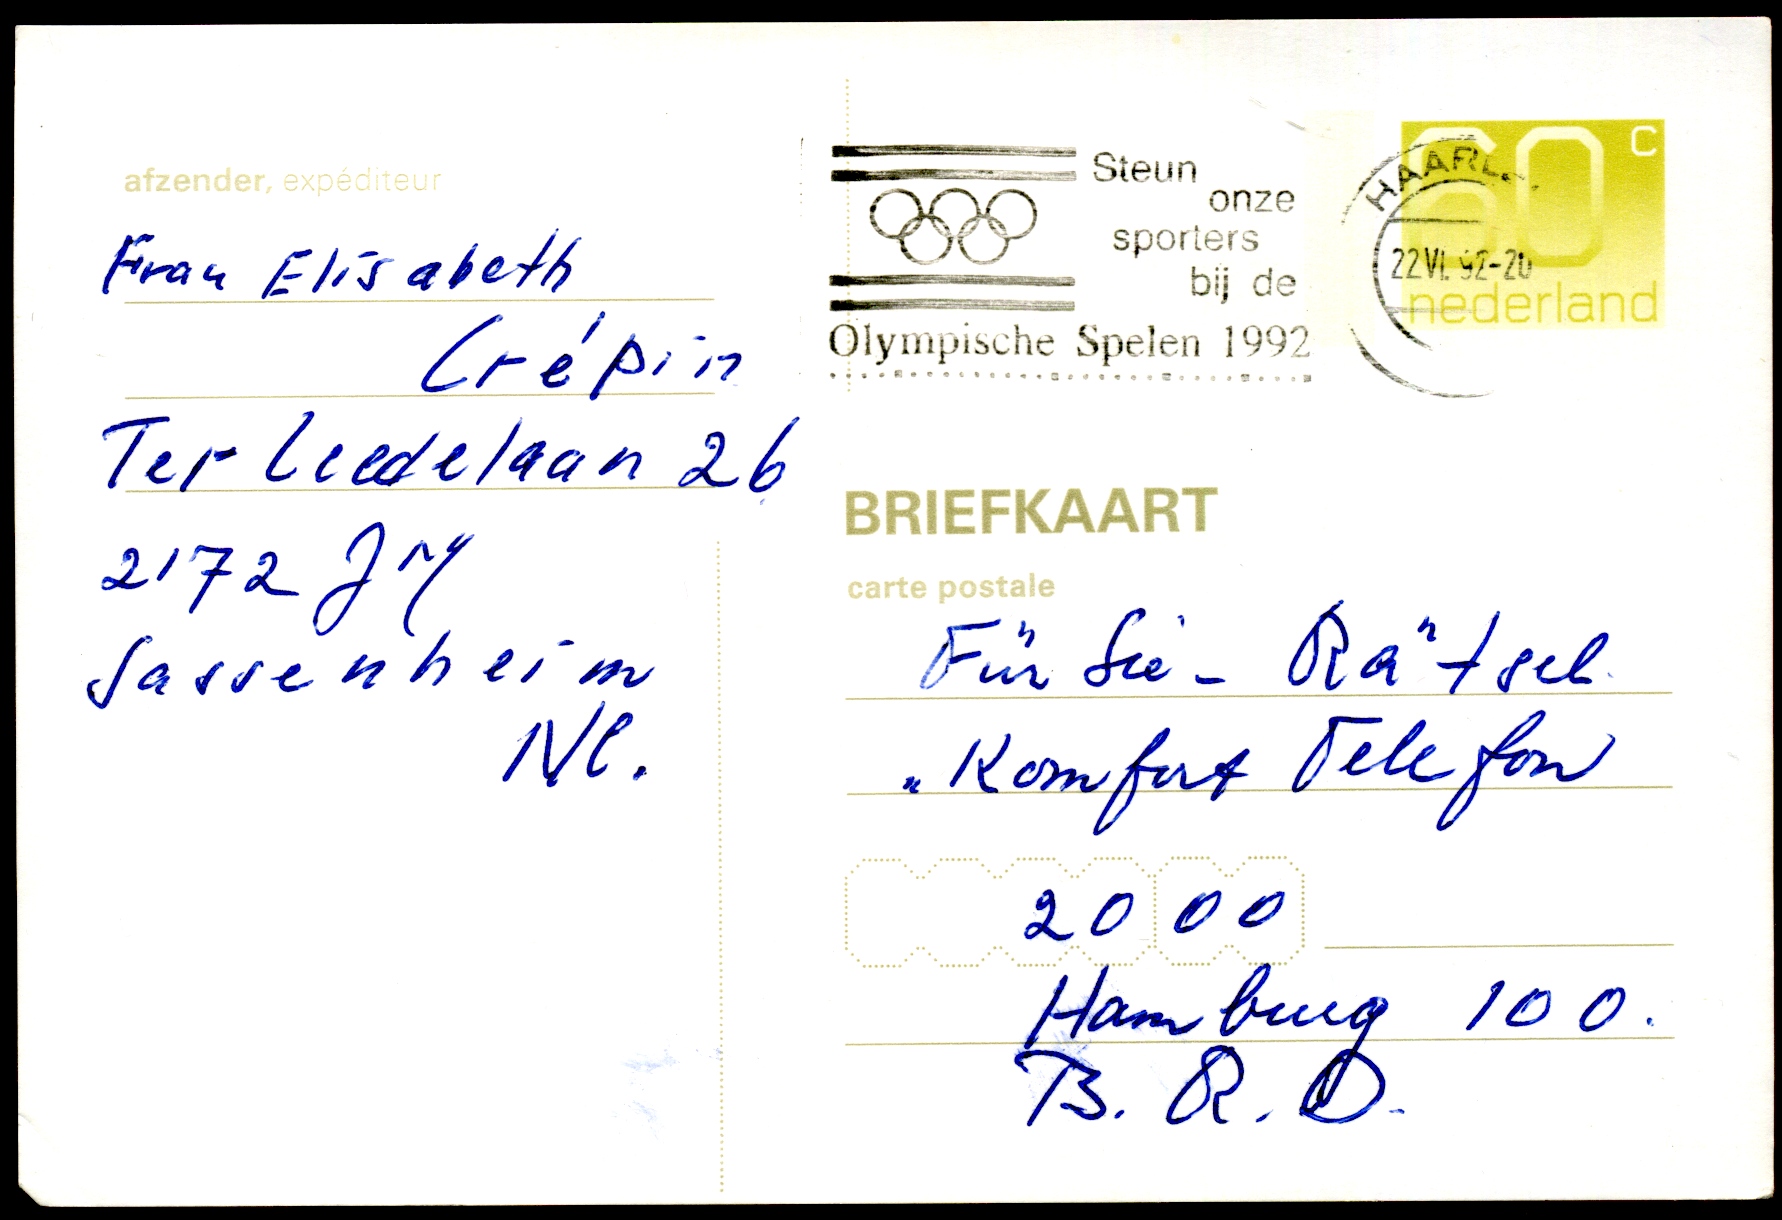 afzender, expéditeur
Frau Elisabeth
Crépin
Ter Leedelaan 26
2172 JM
Sassenheim
Nl.
Steun
onze
sporters
bij de
Olympische Spelen 1992
22 VI. 92-20
60 c
nederland
BRIEFKAART
carte postale
Für Sie - Rätsel
"Komfort Telefon
2000
Hamburg 100.
B. R. D.